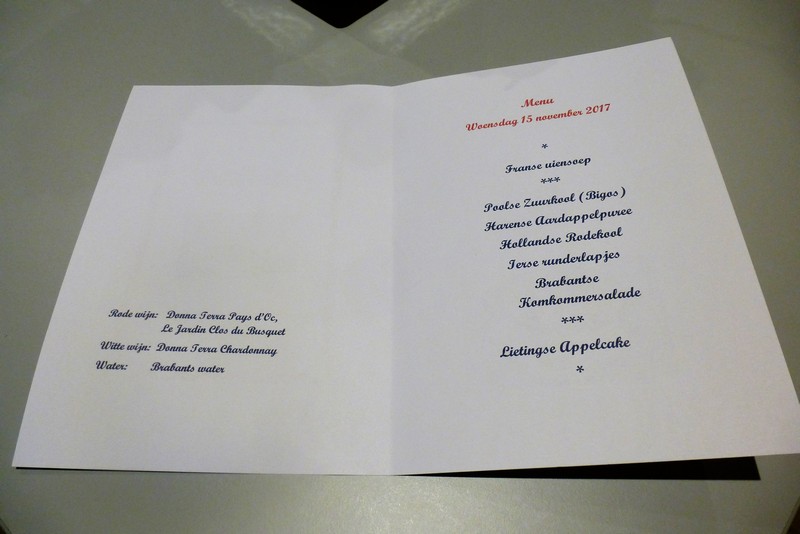 Rode wijn: Donna Terra Pays d'Oc,
Le Jardin Clos du Busquet
Witte wijn: Donna Terra Chardonnay
Water: Brabants water
Menu
Woensdag 15 november 2017
*
Franse uiensoep
***
Poolse Zuurkool (Bigos)
Harense Aardappelpuree
Hollandse Rodekool
Ierse runderlapjes
Brabantse
Komkommersalade
***
Lietingse Appelcake
*